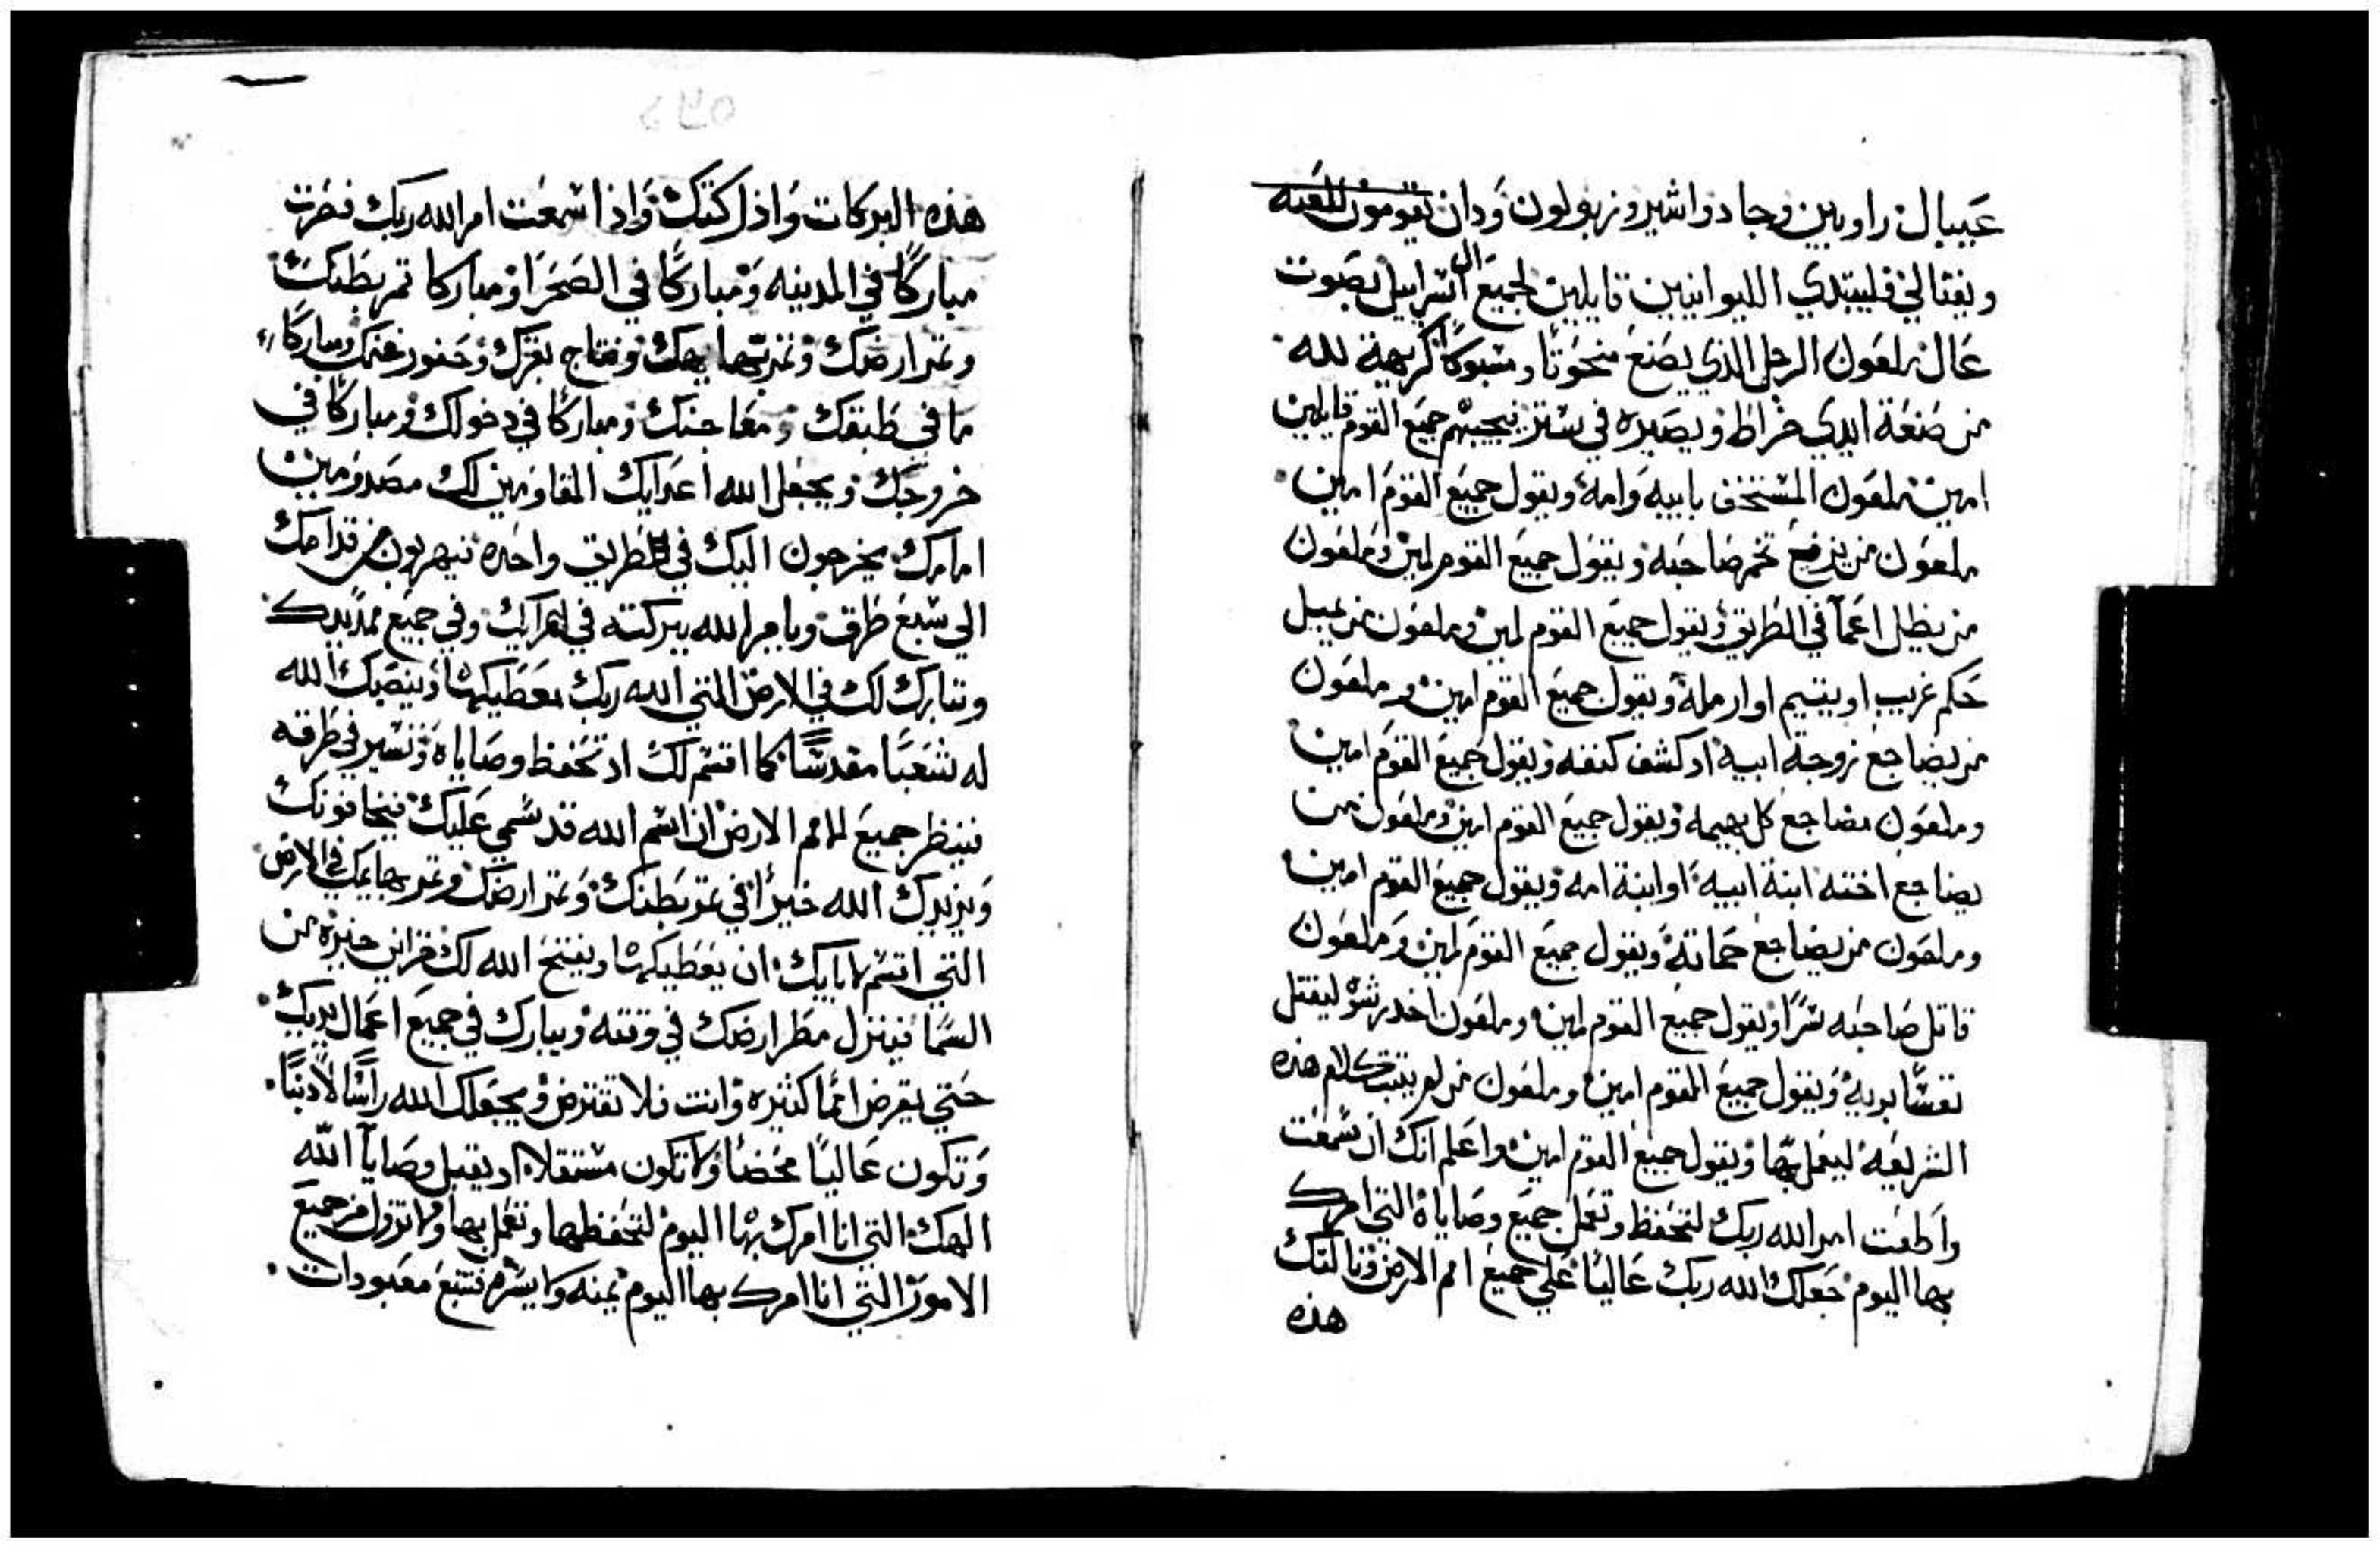 عيبال راوبين وجاد واشير وزبولون ودان يقومون للعنه
ويقتالي فليبتدي الليوانيين قايلين لجميع ال اسراييل بصوت
عال ملعون الرجل الذي يصنع منحوتا ومسبوكا كريهة لله
من صنعة ايدي خراط ويصيره في ستر فيجيبهم جميع القوم قايلين
امين ملعون المستخف بابيه وامه ويقول جميع القوم امين
ملعون من يدفع تخم صاحبه ويقول جميع القوم امين وملعون
من يظل اعما في الطريق ويقول جميع القوم امين وملعون من يميل
حكم غريب او يتيم او ارمله ويقول جميع القوم امين وملعون
من يضاجع زوجة ابيه اد كشف كنفه ويقول جميع القوم امين
وملعون مضاجع كل بهيمه ويقول جميع القوم امين وملعون من
يضاجع اخته ابنة ابيه او ابنة امه ويقول جميع القوم امين
وملعون من يضاجع حماته ويقول جميع القوم امين وملعون
قاتل صاحبه سرا ويقول جميع القوم امين وملعون اخد رشو ليقتل
نفسا بريه ويقول جميع القوم امين وملعون من لم يتبت كلام هذه
الشريعه ليعمل بها ويقول جميع القوم امين واعلم انك ان سمعت
واطعت امر الله ربك لتحفظ وتعمل جميع وصاياه التي امرك
بها اليوم جعلك الله ربك عاليا علي جميع امم الارض ونالتك
هذه
هذه البركات واذركتك واذا سمعت امر الله ربك فصرت
مباركا في المدينه ومباركا في الصحرا ومباركا تمر بطنك
وتمر ارضك وتمر بهايمك ونتاج بقرك وجفور غنمك ومباركا
ما في طبقك ومعاجنك ومباركا في دخولك ومباركا في
خروجك ويجعل الله اعدايك المقاومين لك مصدومين
امامك يخرجون اليك في طريق واحده فيهربون من قدامك
الي سبع طرق ويامر الله ببركته في اهرايك وفي جميع ممد يدك
وتبارك لك في الارض التي الله ربك معطيكها وينصبك الله
له شعبا مقدسا كما اقسم لك اد تحفظ وصاياه وتسير في طرقه
فينظر جميع امم الارض ان اسم الله قد سمي عليك فيخافونك
ويزيدك الله خيرا في تمر بطنك وتمر ارضك وتمر بهايمك في الارض
التي اقسم لابايك ان يعطيكها ويفتح الله لك خزاين خيره من
السما فينزل مطر ارضك في وقته ويبارك في جميع اعمال يديك
حتي يقرض امما كثيره وانت فلا تقترض ويجعلك الله راسا لا دنبا
وتكون عاليا محضا ولا تكون مستقلا اد يقبل وصايا الله
الهك التي انا امرك بها اليوم لتحفظها وتعمل بها ولا تزول من جميع
الامور التي انا امرك بها اليوم يمنه ولا يسره فتتبع معبودات